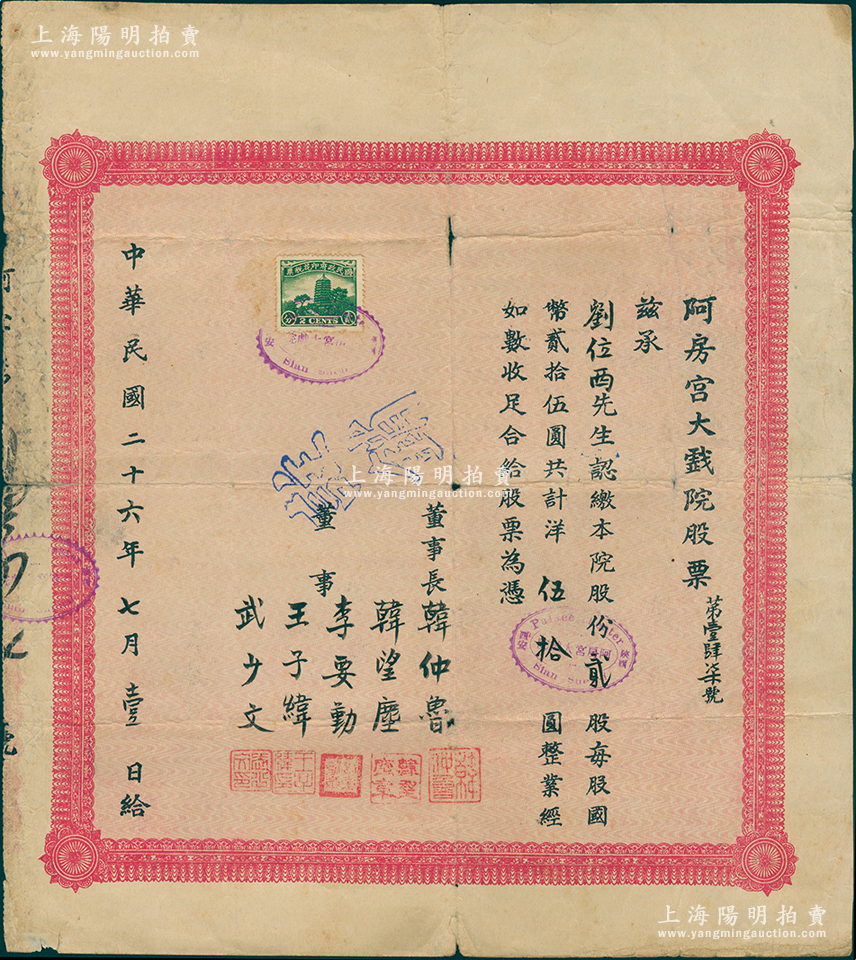 上海陽明拍賣
www.yangmingauction.com
上海陽明拍賣
www.yangmingauction.com
阿房宮大戲院股票
第壹肆柒號
茲承
劉位西先生認繳本院股份貳股每股國
幣貳拾伍圓共計洋伍拾圓整業經
如數收足合給股票為憑
Sian
董事長韓仲魯
董事
韓望塵
李要勤
王子緯
武少文
國民政府印花稅票
2 CENTS
Sian
中華民國二十六年七月壹日給
上海陽明拍賣
www.yangmingauction.com
上海陽明拍賣
www.yangmingauction.com